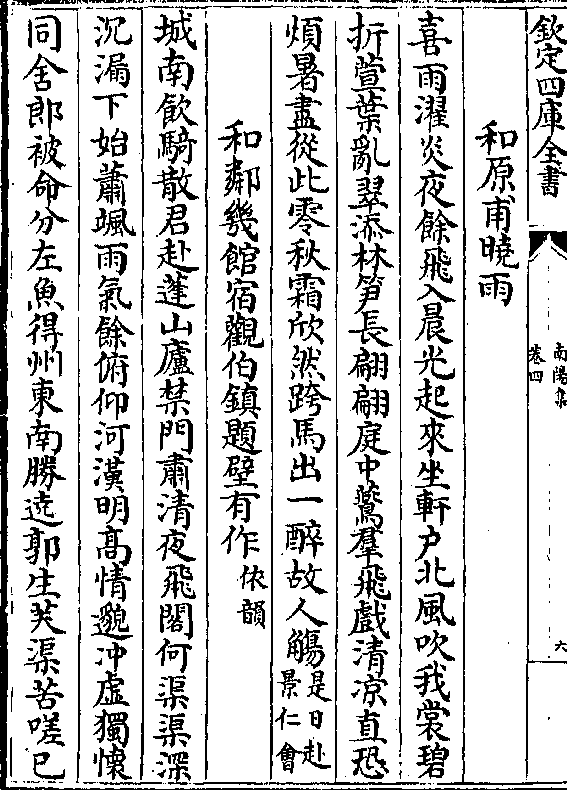 欽定四庫全書
南陽集
卷四
六
和原甫曉雨
喜雨濯炎夜餘飛入晨光起來坐軒户北風吹我裳碧
折萱葉亂翠添林笋長翩翩庭中鷰羣飛戲清凉直恐
煩暑盡從此零秋霜欣然跨馬出一醉故人觴是日赴景仁會
和鄰幾館宿觀伯鎮題壁有作依韻
城南飲騎散君赴蓬山廬禁門肅清夜飛閣何渠渠深
沉漏下始蕭颯雨氣餘俯仰河漢明髙情邈冲虛獨懷
同舍郎被命分左魚得州東南勝遶郭生芙渠苦嗟已